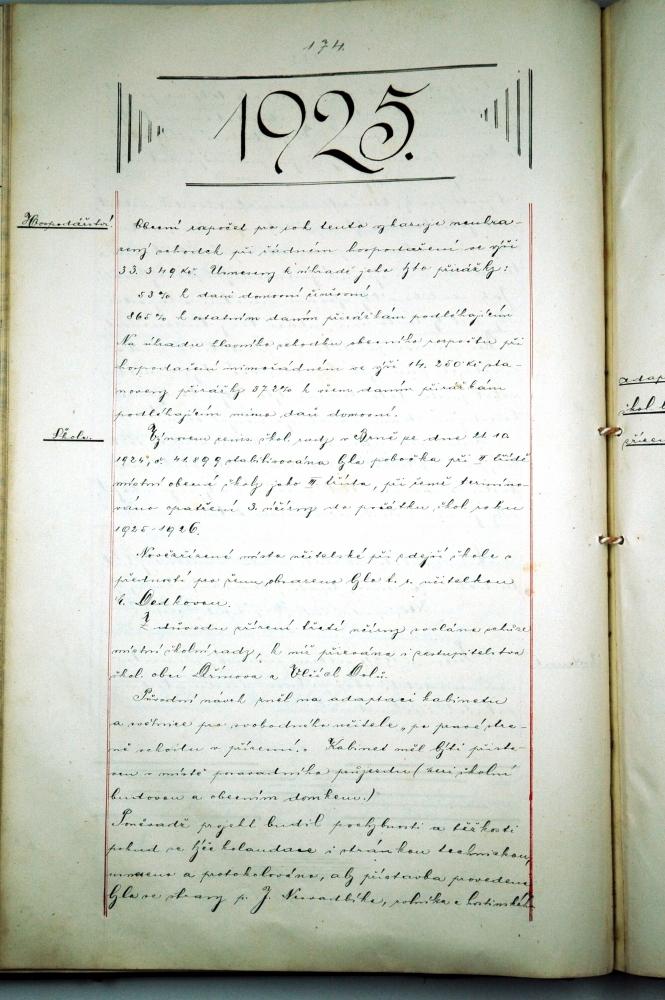 174.
1925.
Hospodářství
Obecní rozpočet pro rok tento vykazuje neuhra-
zený schodek při řádném hospodaření ve výši
33.349 Kč. Usneseny k úhradě jeho byly přirážky:
53% k dani domovní činžovní
365% k ostatním daním přirážkám podléhajícím
Na úhradu hlavního schodku obecního rozpočtu při
hospodaření mimořádném ve výši 14.250 Kč sta-
noveny přirážky 372% k všem daním přirážkám
podléhajícím mimo daň domovní.
Škola.
Výnosem zems. škol. rady v Brně ze dne 21.10.
1924, č. 41.899 stabilisována byla pobočka při II třídě
místní obecné školy jako III třída, při čemž termino-
váno opatření 3. učebny do počátku škol. roku
1925-1926.
Nově zřízené místo učitelské při zdejší škole s
předností pro ženu obsazeno bylo t. r. učitelkou
Dedkovou.
Z důvodu zřízení třetí učebny svolána schůze
místní školní rady, k níž přizvána i zastupitelstva
škol. obcí Dřínova a Vlčích Dolů.
Původní návrh zněl na adaptaci kabinetu
a světnice pro svobodného učitele, po pravé stra-
ně schodů v přízemí. Kabinet měl býti přista-
ven v místě posavadního průjezdu (mezi školní
budovou a obecním domkem.)
Poněvadž projekt budil pochybnosti a těžkosti
pokud se týče kolaudace i stránkou technickou,
usneseno a protokolováno, aby přístavba provedena
byla se strany p. J. Nesvadbíka, rolníka a hostinského
adap
škol
zřízen